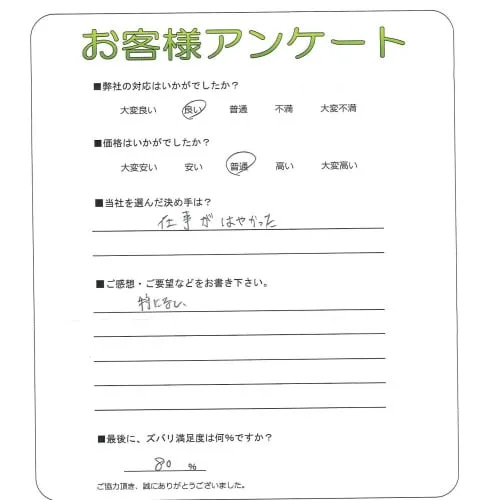 お客様アンケート
■弊社の対応はいかがでしたか？
大変良い 良い 普通 不満 大変不満
■価格はいかがでしたか？
大変安い 安い 普通 高い 大変高い
■当社を選んだ決め手は？
仕事がはやかった
■ご感想・ご要望などをお書き下さい。
特になし、
■最後に、ズバリ満足度は何％ですか？
80 ％
ご協力頂き、誠にありがとうございました。